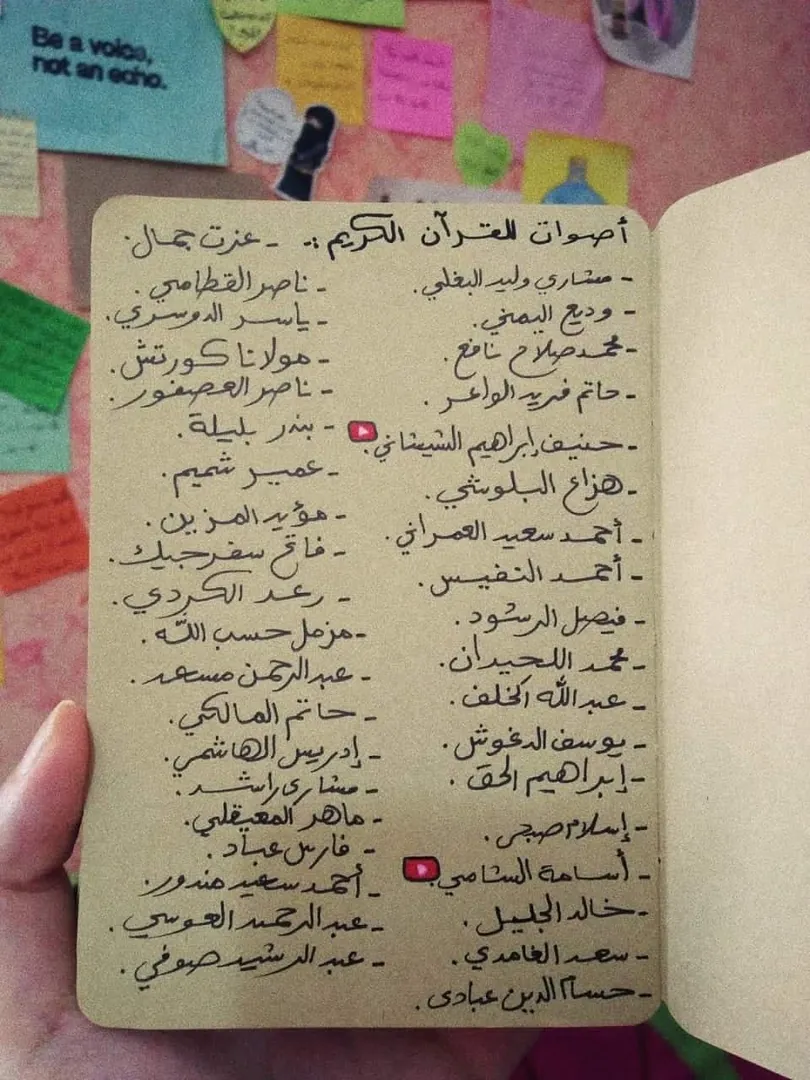 Be a voice,
not an echo.
أصوات للقرآن الكريم :-
- مشاري وليد البغلي.
- وديع اليمني.
- محمد صلاح نافع.
- حاتم فريد الواعر.
- حنيف إبراهيم الشيشاني.
- هزاع البلوشي.
- أحمد سعيد العمراني.
- أحمد النفيس.
- فيصل الرشود.
- محمد اللحيدان.
- عبدالله الخلف.
- يوسف الدغوش.
- إبراهيم الحق.
- إسلام صبحي.
- أسامة الشامي.
- خالد الجليل.
- سعد الغامدي.
- حسام الدين عبادى.
- عزت جمال.
- ناصر القطامي.
- ياسر الدوسري.
- مولانا كورتش.
- ناصر العصفور.
- بندر بليلة.
- عمير شميم.
- مؤيد المزين.
- فاتح سفرجيك.
- رعد الكردي.
- مزمل حسب الله.
- عبدالرحمن مسعد.
- حاتم المالكي.
- إدريس الهاشمي.
- مشارى راشد.
- ماهر المعيقلي.
- فارس عباد.
- أحمد سعيد مندور.
- عبدالرحمن العوسي.
- عبدالرشيد صوفي.